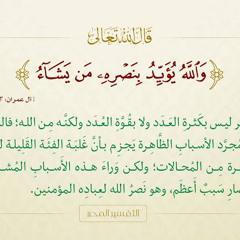 قال الله تعالى
وَٱللَّهُ يُؤَيِّدُ بِنَصۡرِهِۦ مَن يَشَآءُ
ال عمران:
ر ليس بكَثرةِ العَدَد ولا بقُوَّةِ العُدَد ولكنَّه مِن اللهِ؛ فال
مُجرَّد الأسبابِ الظَّاهِرة يَجزِم بأنَّ غَلَبة الفِئة القَليلة ل
رة مِن المُحالات؛ ولكن وَراءَ هذه الأسبابِ المُش
صارِ سَببٌ أعظَم، وهو نَصْرُ الله لعِبادِه المؤمنين.
التفسير المحرر